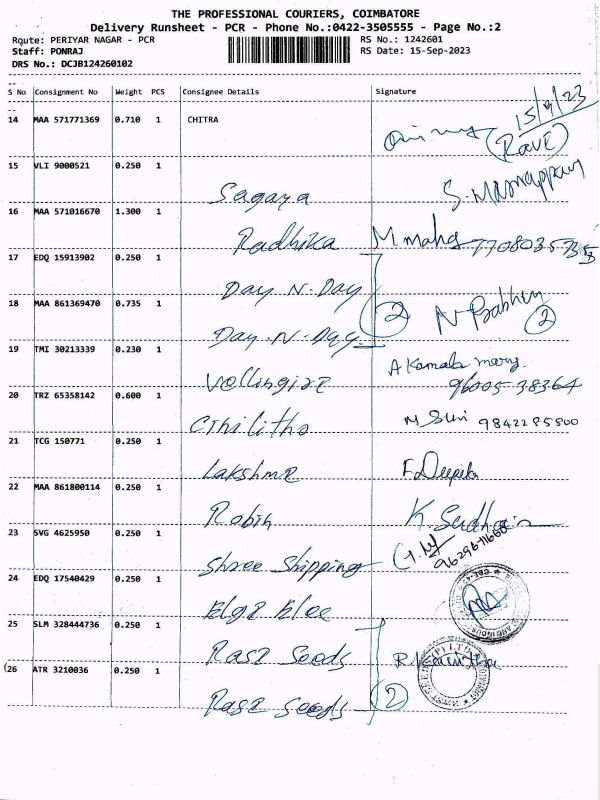 THE PROFESSIONAL COURIERS, COIMBATORE
Delivery Runsheet - PCR - Phone No.:0422-3505555 - Page No.:2
Route: PERIYAR NAGAR - PCR RS No.: 1242601
Staff: PONRAJ RS Date: 15-Sep-2023
DRS No.: DCJB124260102
S No Consignment No Weight PCS Consignee Details Signature
15/9/23
14 MAA 571771369 0.710 1 CHITRA
(RAVE)
15 VLI 9000521 0.250 1
Sagaya S.
16 MAA 571016670 1.300 1
Radhika M maha
17 EDQ 15913902 0.250 1
Day N-Day
18 MAA 861369470 0.735 1 2 N Prabhu 2
Day-N-Day
19 TMI 30213339 0.230 1 A Kamala mary
96005-38364
20 TRZ 65358142 0.600 1
M 
21 TCG 150771 0.250 1
Lakshme F.Deepika
22 MAA 861800114 0.250 1
Robin K.
23 SVG 4625950 0.250 1
Shree Shipping
24 EDQ 17540429 0.250 1
25 SLM 328444736 0.250 1
Rasz Seeds
26 ATR 3210036 0.250 1
Rasz Seeds 2